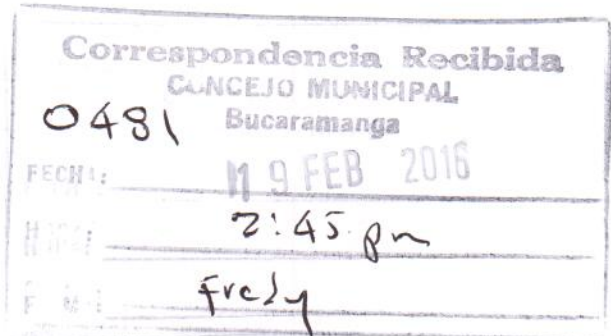 Correspondencia Recibida
CONCEJO MUNICIPAL
0481 Bucaramanga
FECHA: 19 FEB 2016
HORA: 2:45 pm
Fredy